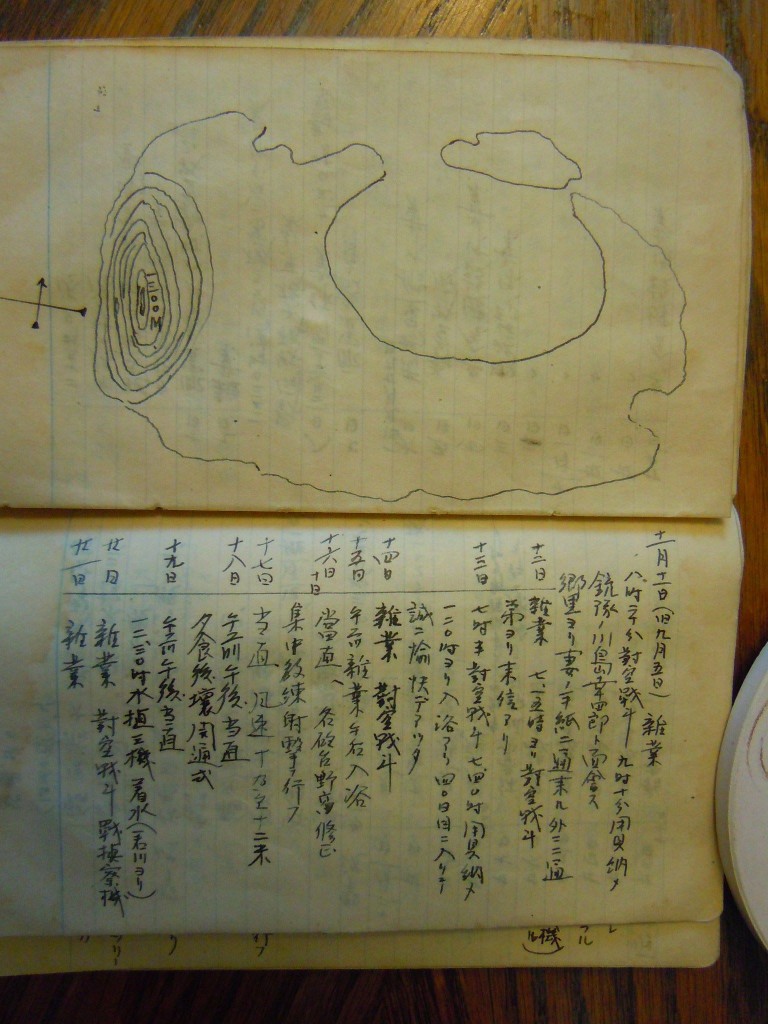 100M
十一月十一日(旧九月五日) 雑業
八時二十分對空戰斗 九時十分用具納メ
銃隊ノ川島幸四郎ト面會ス
郷里ヨリ妻ノ手紙二通来ル外ニ二通
十二日 雑業 七.一五時ヨリ對空戰斗
弟ヨリ来信アリ
十三日 七時半對空戰斗 七.四〇時用具納メ
一二〇時ヨリ入浴アリ 四〇日目ニ入リテ
誠ニ愉快デアッタ
十四日 雑業 對空戰斗
十五日 午前雑業 午后入浴
十六日 當直 各砲台野窩修正
十七日 当直 風速
集中教練射撃ヲ行フ
十八日 午前午後当直
夕食後壕開通式
十九日 午前午後当直
一二.三〇時水植三機着水(若川ヨリ)
廿日 雑業 對空戰斗 戰偵察機
廿一日 雑業